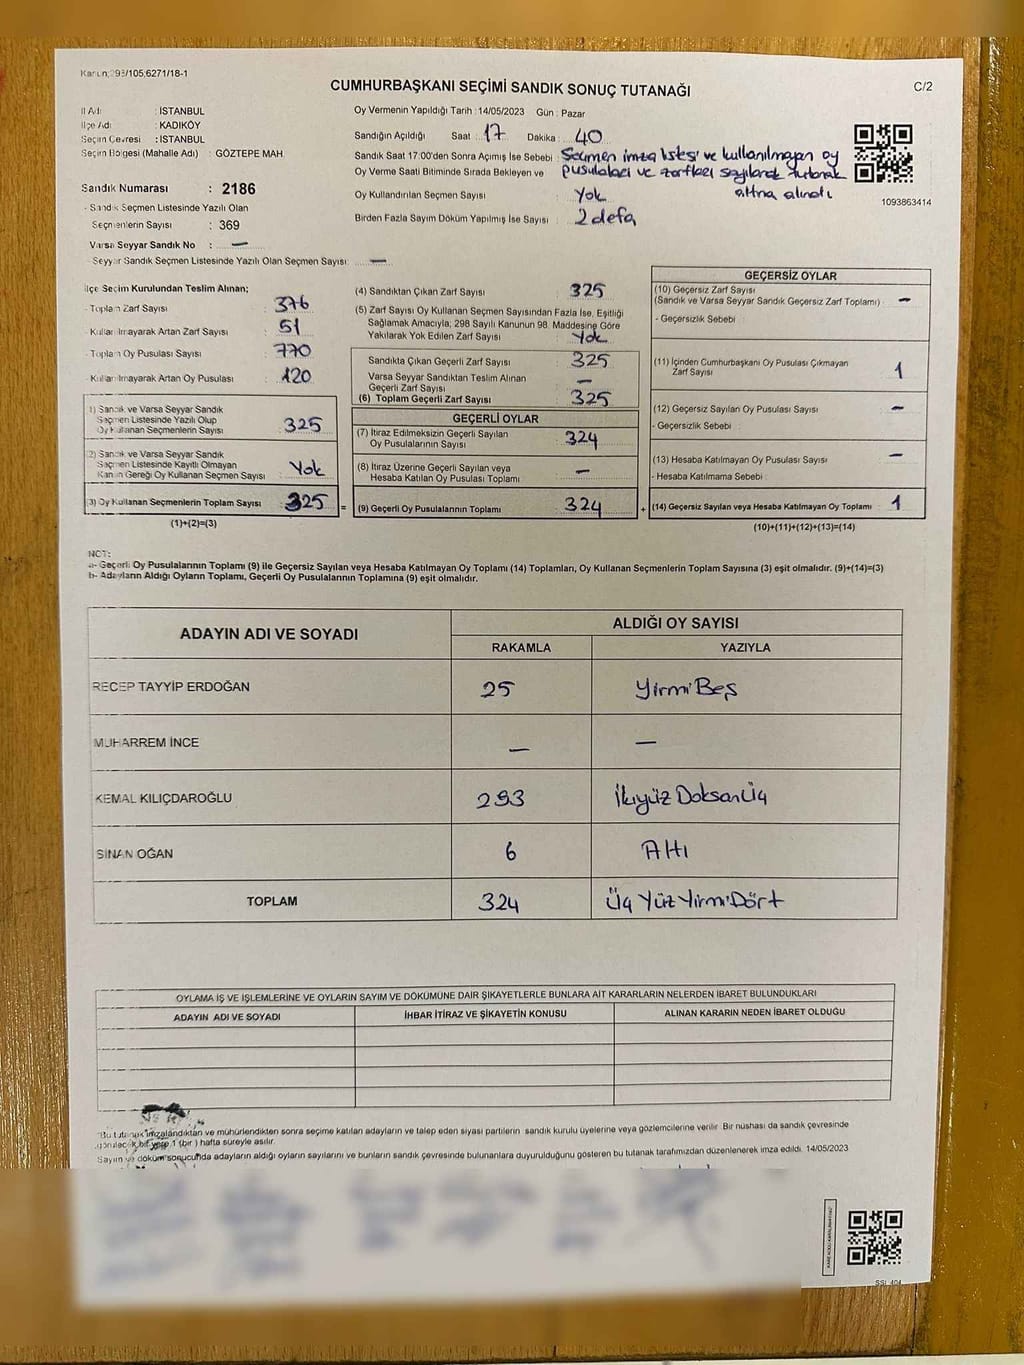 Kanun;298/105;6271/18-1
CUMHURBAŞKANI SEÇİMİ SANDIK SONUÇ TUTANAĞI
C/2
İl Adı : İSTANBUL
İlçe Adı : KADIKÖY
Seçim Çevresi : İSTANBUL
Seçim Bölgesi (Mahalle Adı) : GÖZTEPE MAH
Sandık Numarası : 2186
- Sandık Seçmen Listesinde Yazılı Olan
Seçmenlerin Sayısı : 369
Varsa Seyyar Sandık No : —
- Seyyar Sandık Seçmen Listesinde Yazılı Olan Seçmen Sayısı: —
Oy Vermenin Yapıldığı Tarih : 14/05/2023 Gün : Pazar
Sandığın Açıldığı Saat : 17 Dakika : 40
Sandık Saat 17:00'den Sonra Açımış İse Sebebi : Seçmen imza listesi ve kullanılmayan oy
Oy Verme Saati Bitiminde Sırada Bekleyen ve pusulaları ve zarfları sayılarak tutanak
altına alındı
Oy Kullandırılan Seçmen Sayısı : Yok
Birden Fazla Sayım Döküm Yapılmış İse Sayısı : 2 defa
1093863414
İlçe Seçim Kurulundan Teslim Alınan;
- Toplam Zarf Sayısı : 376
- Kullanılmayarak Artan Zarf Sayısı : 51
- Toplam Oy Pusulası Sayısı : 770
- Kullanılmayarak Artan Oy Pusulası : 120
1) Sandık ve Varsa Seyyar Sandık
Seçmen Listesinde Yazılı Olup
Oy Kullanan Seçmenlerin Sayısı : 325
(2) Sandık ve Varsa Seyyar Sandık
Seçmen Listesinde Kayıtlı Olmayan
Kanun Gereği Oy Kullanan Seçmen Sayısı : Yok
(3) Oy Kullanan Seçmenlerin Toplam Sayısı : 325 =
(1)+(2)=(3)
(4) Sandıktan Çıkan Zarf Sayısı : 325
(5) Zarf Sayısı Oy Kullanan Seçmen Sayısından Fazla İse, Eşitliği
Sağlamak Amacıyla; 298 Sayılı Kanunun 98. Maddesine Göre
Yakılarak Yok Edilen Zarf Sayısı : Yok
Sandıkta Çıkan Geçerli Zarf Sayısı : 325
Varsa Seyyar Sandıktan Teslim Alınan
Geçerli Zarf Sayısı : —
(6) Toplam Geçerli Zarf Sayısı : 325
GEÇERLİ OYLAR
(7) İtiraz Edilmeksizin Geçerli Sayılan
Oy Pusulalarının Sayısı : 324
(8) İtiraz Üzerine Geçerli Sayılan veya
Hesaba Katılan Oy Pusulası Toplamı : —
(9) Geçerli Oy Pusulalarının Toplamı : 324 +
GEÇERSİZ OYLAR
(10) Geçersiz Zarf Sayısı
(Sandık ve Varsa Seyyar Sandık Geçersiz Zarf Toplamı) : —
- Geçersizlik Sebebi :
(11) İçinden Cumhurbaşkanı Oy Pusulası Çıkmayan
Zarf Sayısı : 1
(12) Geçersiz Sayılan Oy Pusulası Sayısı : —
- Geçersizlik Sebebi :
(13) Hesaba Katılmayan Oy Pusulası Sayısı : —
- Hesaba Katılmama Sebebi :
(14) Geçersiz Sayılan veya Hesaba Katılmayan Oy Toplamı : 1
(10)+(11)+(12)+(13)=(14)
NOT:
a- Geçerli Oy Pusulalarının Toplamı (9) ile Geçersiz Sayılan veya Hesaba Katılmayan Oy Toplamı (14) Toplamları, Oy Kullanan Seçmenlerin Toplam Sayısına (3) eşit olmalıdır. (9)+(14)=(3)
b- Adayların Aldığı Oyların Toplamı, Geçerli Oy Pusulalarının Toplamına (9) eşit olmalıdır.
ADAYIN ADI VE SOYADI
ALDIĞI OY SAYISI
RAKAMLA YAZIYLA
RECEP TAYYİP ERDOĞAN 25 Yirmi Beş
MUHARREM İNCE — —
KEMAL KILIÇDAROĞLU 293 İkiyüz Doksan Üç
SİNAN OĞAN 6 Altı
TOPLAM 324 Üç Yüz Yirmi Dört
OYLAMA İŞ VE İŞLEMLERİNE VE OYLARIN SAYIM VE DÖKÜMÜNE DAİR ŞİKAYETLERLE BUNLARA AİT KARARLARIN NELERDEN İBARET BULUNDUKLARI
ADAYIN ADI VE SOYADI İHBAR İTİRAZ VE ŞİKAYETİN KONUSU ALINAN KARARIN NEDEN İBARET OLDUĞU
"Bu tutanak imzalandıktan ve mühürlendikten sonra seçime katılan adayların ve talep eden siyasi partilerin sandık kurulu üyelerine veya gözlemcilerine verilir. Bir nüshası da sandık çevresinde
görülecek bir yere 1 (bir) hafta süreyle asılır.
Sayım ve döküm sonucunda adayların aldığı oyların sayılarını ve bunların sandık çevresinde bulunanlara duyurulduğunu gösteren bu tutanak tarafımızdan düzenlenerek imza edildi. 14/05/2023